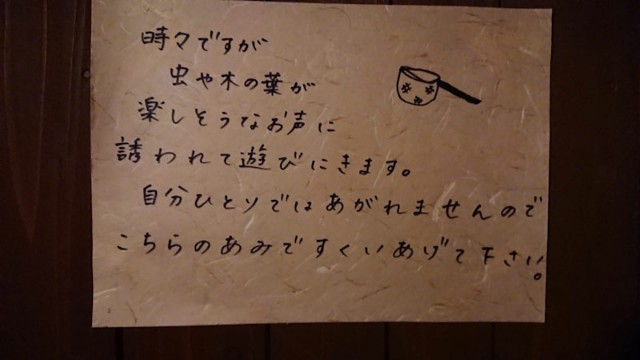 時々ですが
虫や木の葉が
楽しそうなお声に
誘われて遊びにきます。
自分ひとりではあがれませんので
こちらのあみですくいあげて下さい。